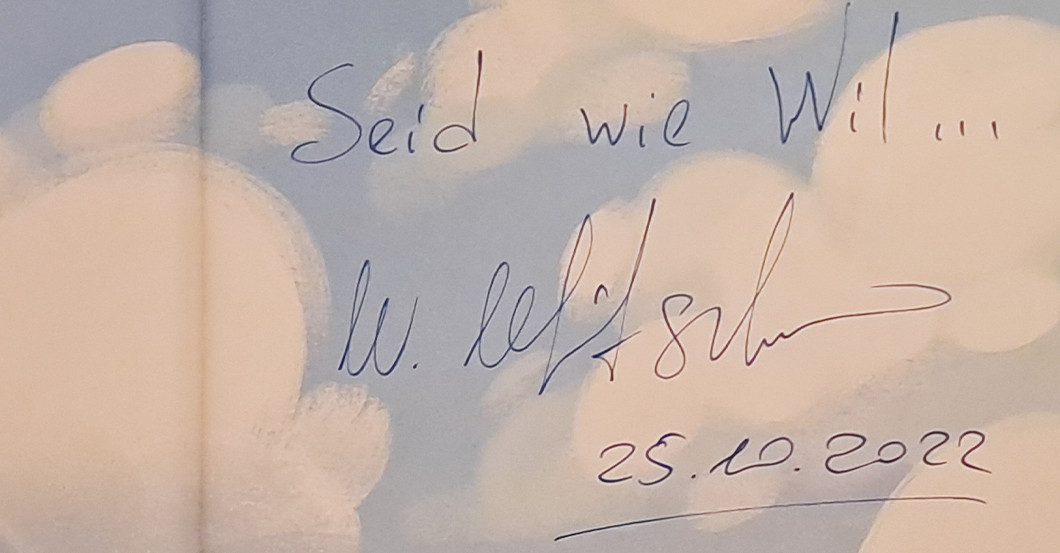 Seid wie Wil...
W.
25.10.2022